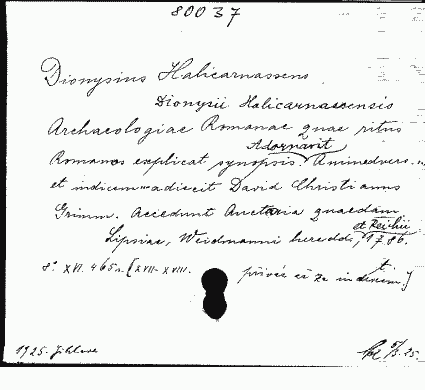 80037
Dionysius Halicarnassens
Dionysii Halicarnassensis
Archaeologiae Romanae quae ritus
Adornavit
Romanos explicat synopsis. Animadvers. ...
et indicem adiecit David Christianus
Grimm. Accedunt Auctaria quaedam
et Reichii
Lipsiae, Weidmanni heredd., 1786.
8° XVI. 465 s. [XVII-XVIII.
1925. Jihlava